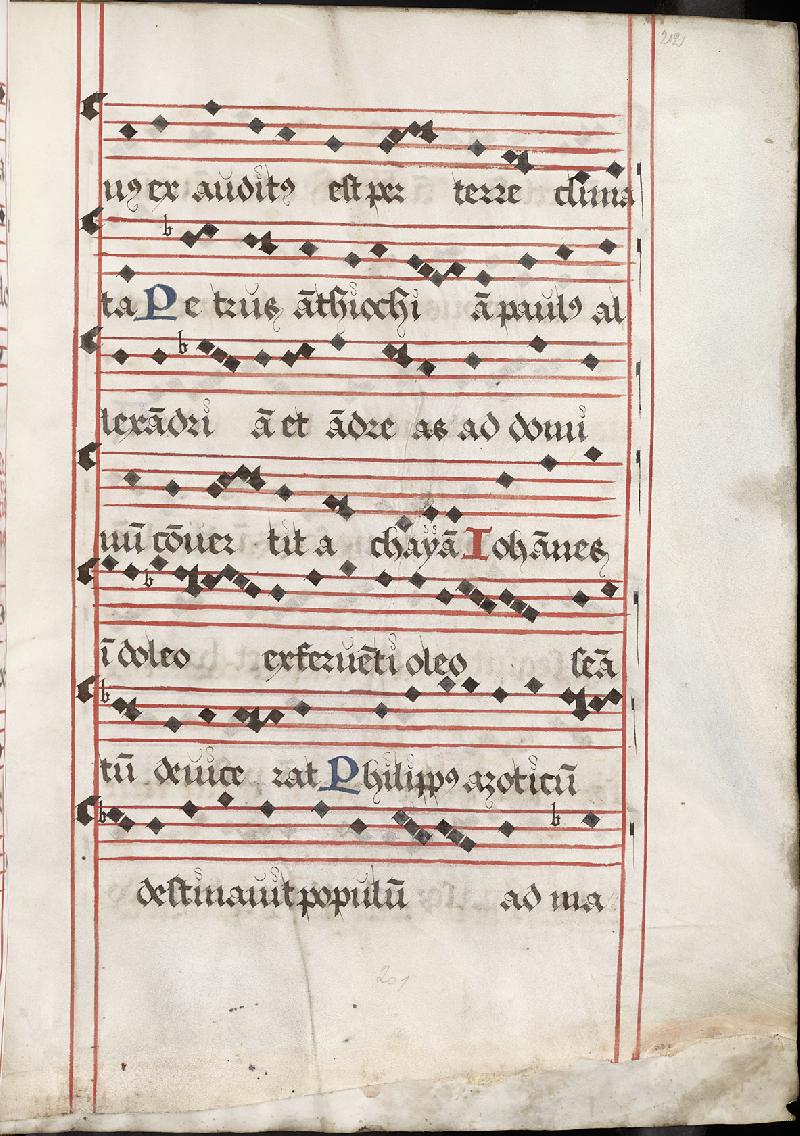 uꝰ ex auditꝰ est per terre clima
ta Petrus āthiochi ā paulꝰ al
lexādri ā et ādre as ad domi
nū cōuer tit a chayā Iohānes
ī doleo exferuēti oleo seā
tū deuice rat Philippꝰ azoticū
destinauit populū ad ma
201